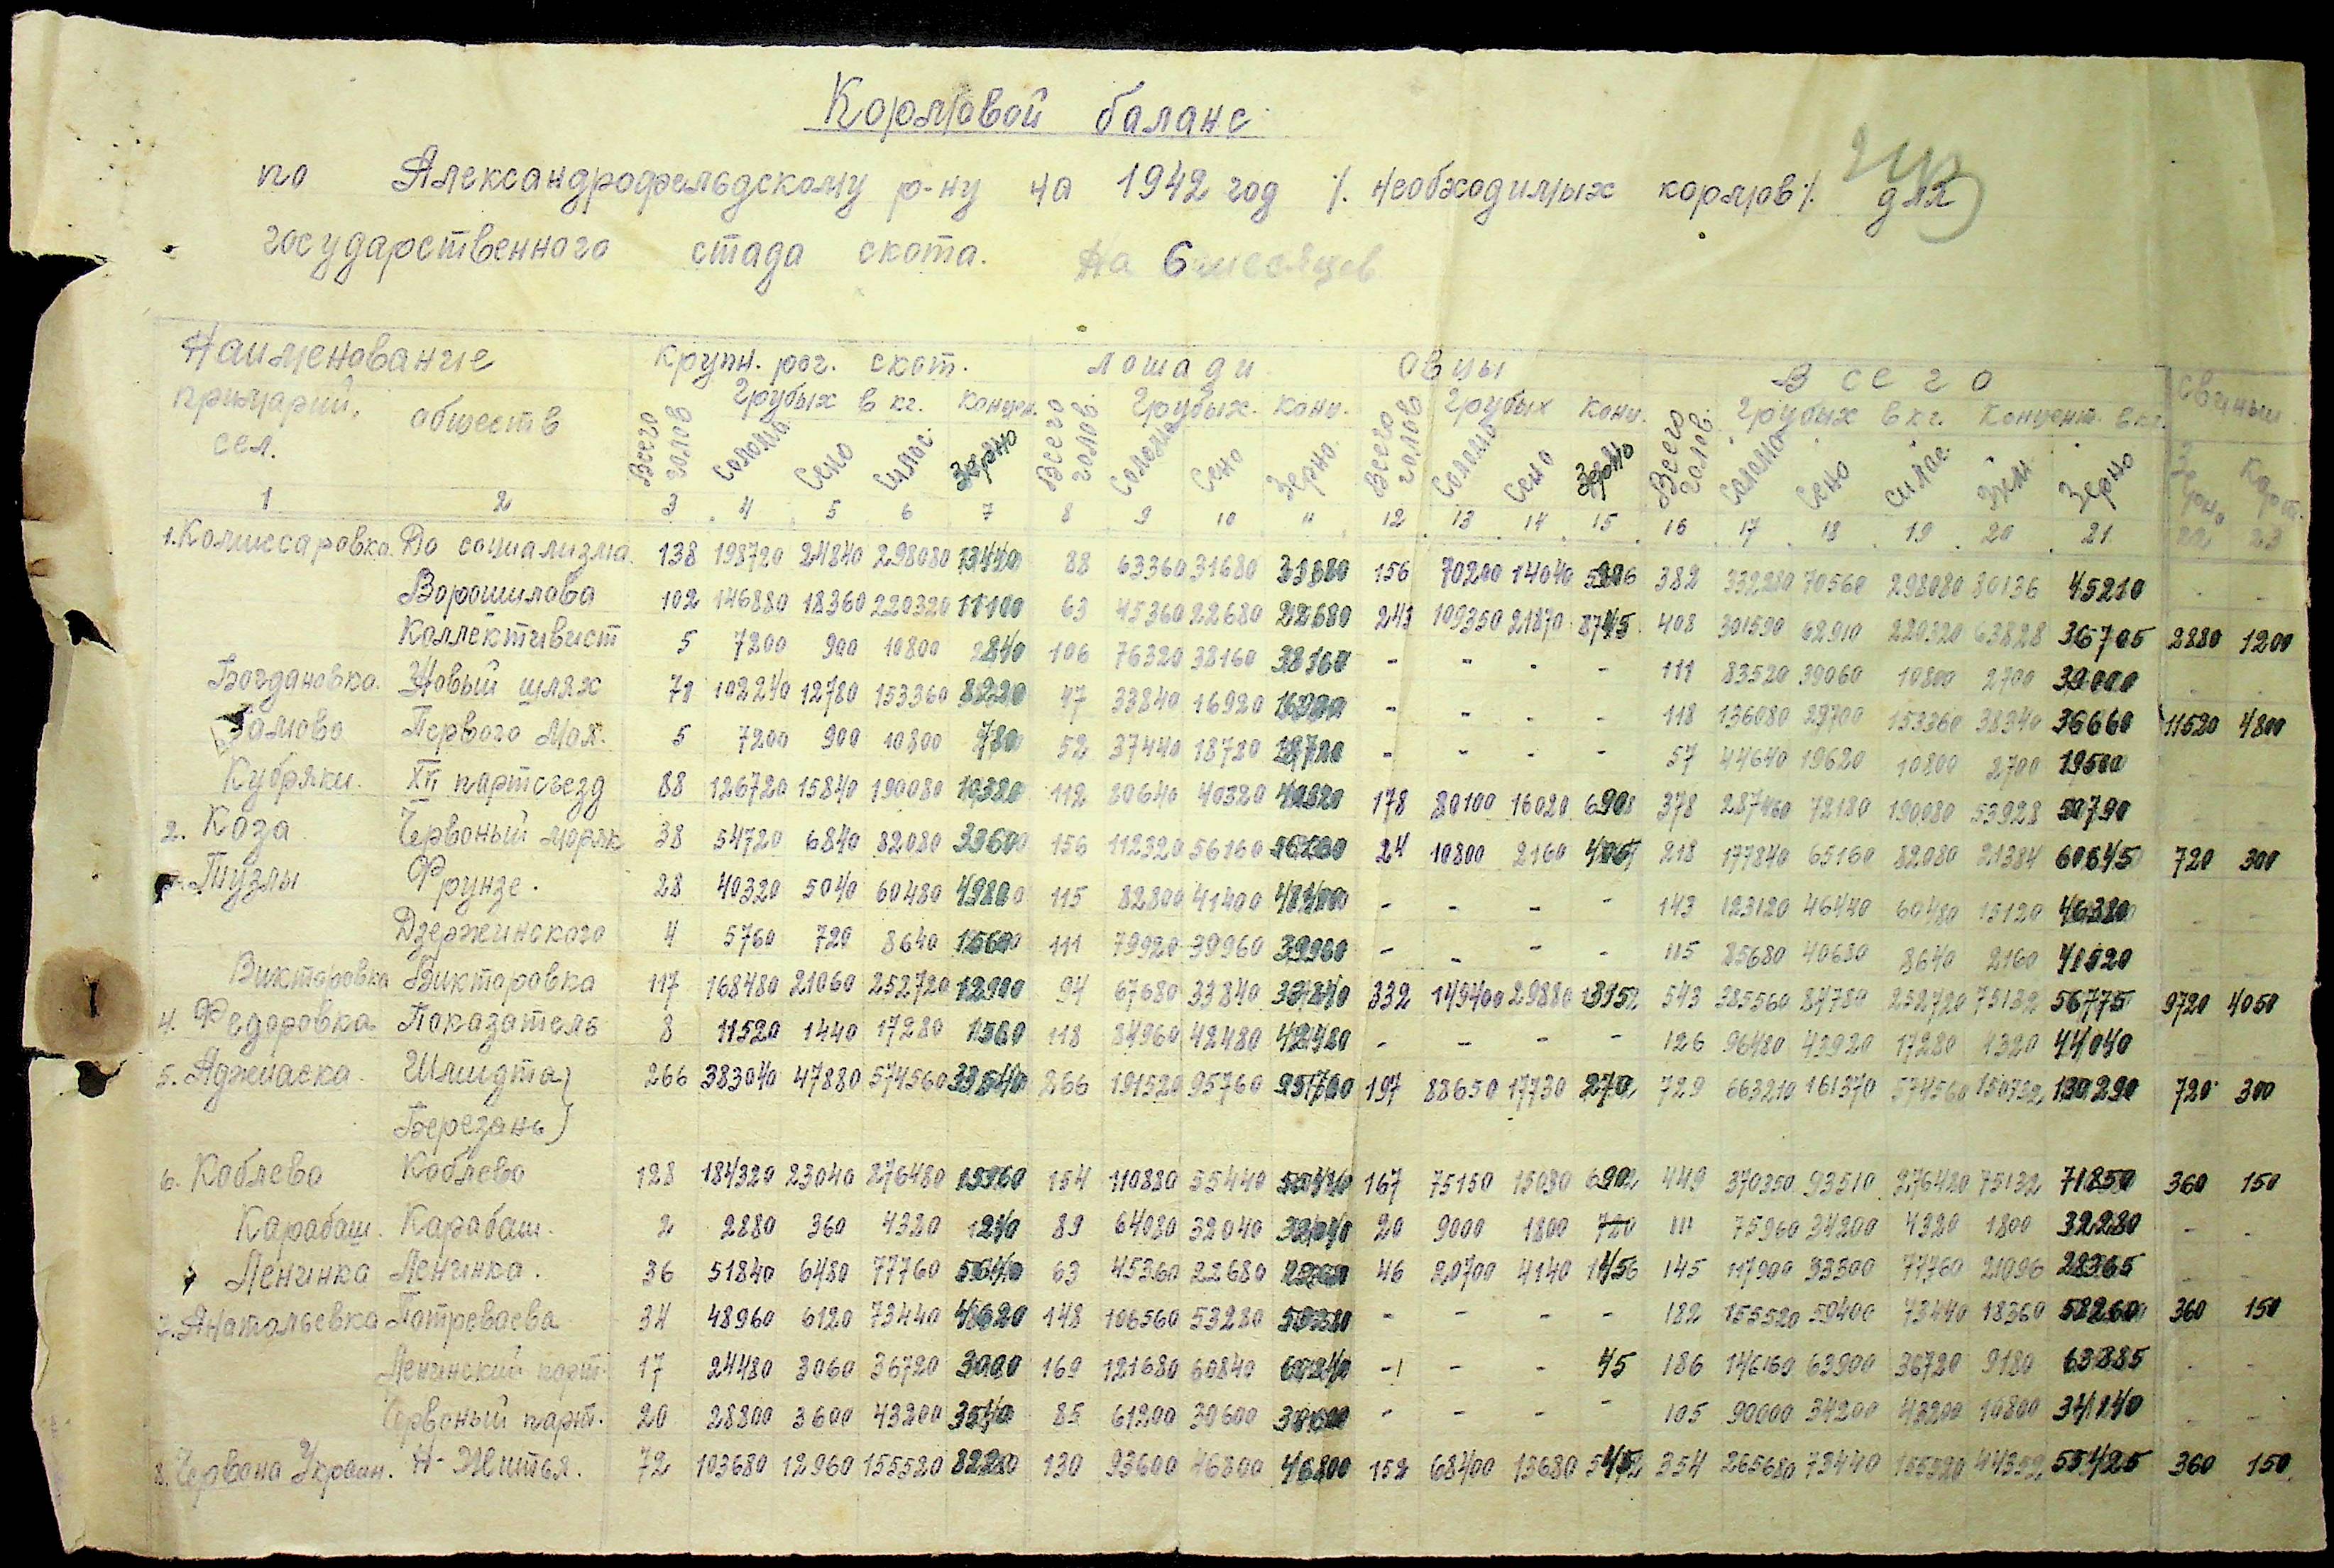 Кормовой баланс
по Александрофельдскому р-ну на 1942 год /. необходимых кормов /. для
государственного стада скота. на 6 месяцев
Наименование крупн. рог. скот. лошади овцы Всего свиньи
примарий, сел. обществ Всего голов Грубых в кг. конц. Всего голов Грубых. конц. Всего голов Грубых конц. Всего голов. Грубых в кг. Концент. в кг.
Солома Сено Силос Зерно Солома Сено Зерно Солома Сено Зерно Солома Сено силос Зерно Зерно Карт.
1 2 3 4 5 6 7 8 9 10 11 12 13 14 15 16 17 18 19 20 21 22 23
1. Комиссаровка. До социализма. 138 198720 24840 298080 88 63360 31680 156 70200 14040 382 332280 70560 298080 80136 45210 - -
Ворошилова 102 146880 18360 220320 11100 63 45360 22680 22680 243 109350 21870 8745 408 301590 62910 220320 63828 36705 2880 1200
Коллективист 5 7200 900 10800 840 106 76320 38160 38160 - - - - 111 83520 39060 10800 2700 39000 - -
Богдановка. Новый шлях 71 102240 12780 153360 47 33840 16920 - - - - 118 136080 29700 153360 38340 36660 11520 4800
Гамово Первого Мая. 5 7200 900 10800 780 52 37440 18720 18720 - - - - 57 44640 19620 10800 2700 19500 - -
Кубряки. партсъезд 88 126720 15840 190080 10380 112 80640 40320 178 80100 16020 6908 378 287460 72180 190080 53928 50790 - -
2. Коза Червоный моряк 38 54720 6840 82080 156 112320 56160 24 10800 2160 218 177840 65160 82080 21384 60645 720 300
Тузлы Фрунзе. 28 40320 5040 60480 4980 115 82800 41400 41400 - - - - 143 123120 46440 60480 15120 46380 - -
Дзержинского 4 5760 720 8640 1560 111 79920 39960 39960 - - - - 115 85680 40680 8640 2160 41520 - -
Викторовка Викторовка 117 168480 21060 252720 12900 94 67680 33840 33840 332 149400 29880 543 385560 84780 252720 75132 56775 9720 4050
4. Федоровка Показатель 8 11520 1440 17280 1560 118 84960 42480 42480 - - - - 126 96480 43920 17280 4320 44040 - -
5. Аджиаска. Шмидта) 266 383040 47880 574560 33540 266 191520 95760 95760 197 88650 17730 270 729 663210 161370 574560 150732 130290 720 300
Березань)
6. Коблево Коблево 128 184320 23040 276480 154 110880 55440 167 75150 15030 6902 449 370350 93510 276480 75132 71850 360 150
Карабаш. Карабаш. 2 2880 360 4320 240 89 64080 32040 32040 20 9000 1800 720 111 75960 34200 4320 1800 32280 - -
Ленинка Ленинка. 36 51840 6480 77760 5640 63 45360 22680 46 20700 4140 1456 145 117900 33300 77760 21096 28365 - -
7. Анатольевка Потреваева 34 48960 6120 73440 148 106560 53280 53280 - - - - 182 155520 59400 73440 18360 58260 360 150
Ленинский парт. 17 24480 3060 36720 3000 169 121680 60840 60840 - - - 45 186 146160 63900 36720 9180 63885 - -
Червоный парт. 20 28800 3600 43200 3540 85 61200 30600 30600 - - - - 105 90000 34200 43200 10800 34140 - -
8. Червона Украин. Н-Життя. 72 103680 12960 155520 8220 130 93600 46800 46800 152 68400 13680 5472 354 265680 73440 155520 44352 55425 360 150